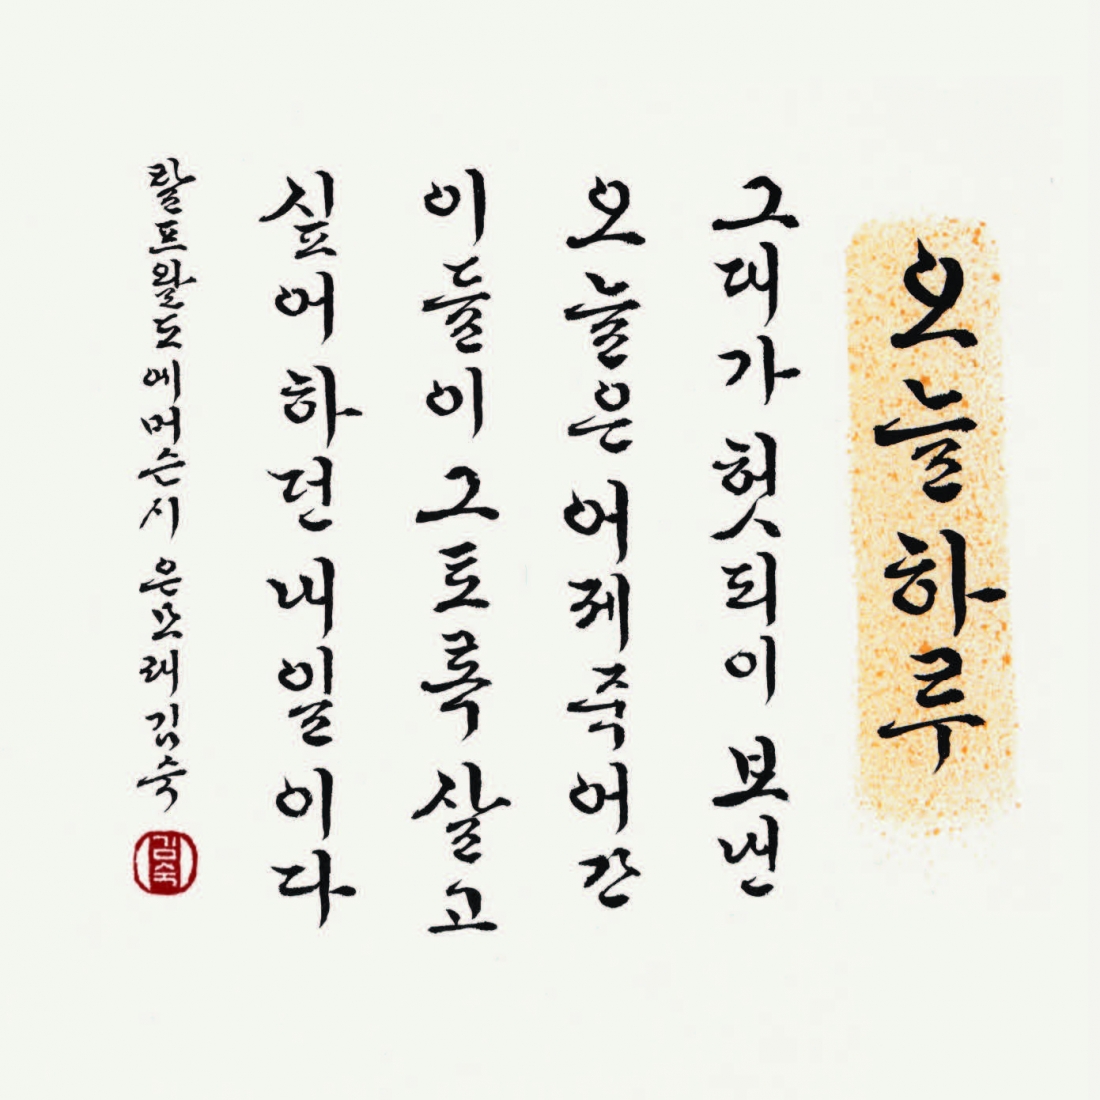 오늘 하루
그대가 헛되이 보낸
오늘은 어제 죽어간
이들이 그토록 살고
싶어 하던 내일이다
랄프 왈도 에머슨 시 은모래 김숙
김숙